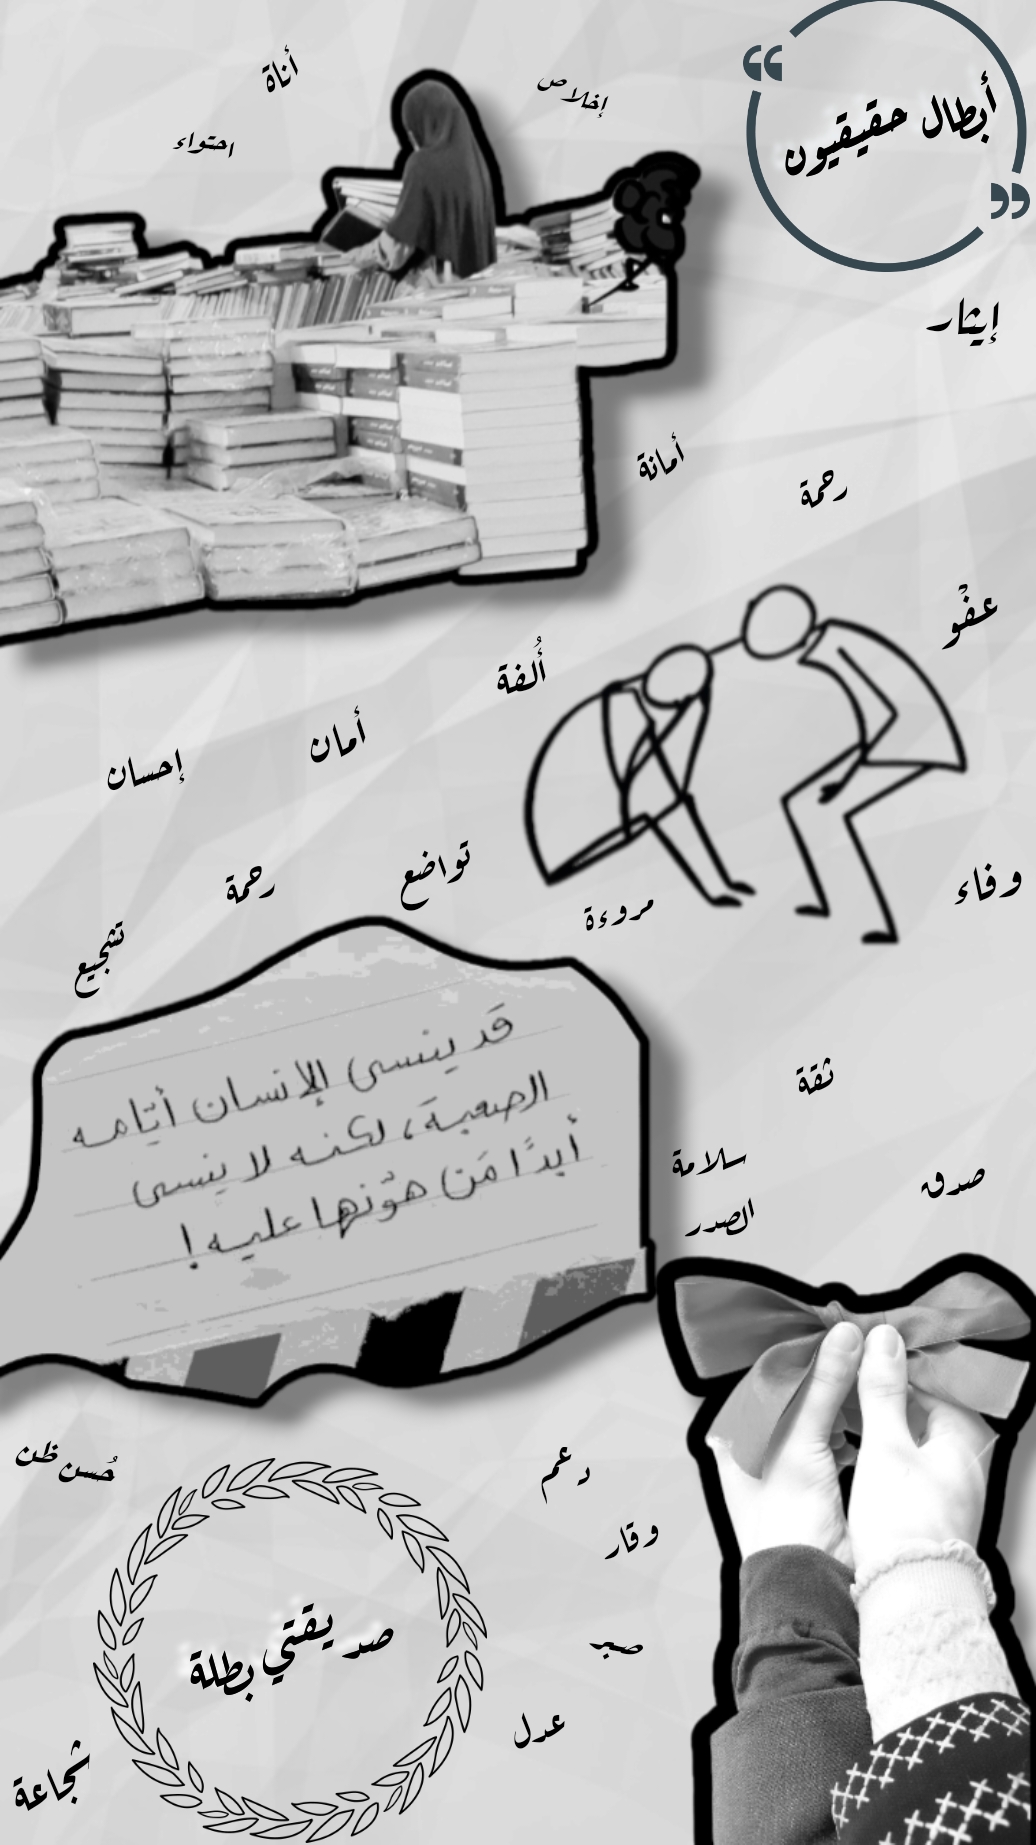 أبطال حقيقيون
أناة
إخلاص
احتواء
إيثار
أمانة
رحمة
عفْو
أُلفة
أمان
إحسان
تواضع
رحمة
وفاء
مروءة
تشجيع
قد ينسى الإنسان أيّامه
الصعبة، لكنه لا ينسى
أبدًا مَن هوّنها عليه!
ثقة
سلامة
الصدر
صدق
حُسن ظن
دعم
وقار
صديقتي بطلة
صبر
عدل
شجاعة